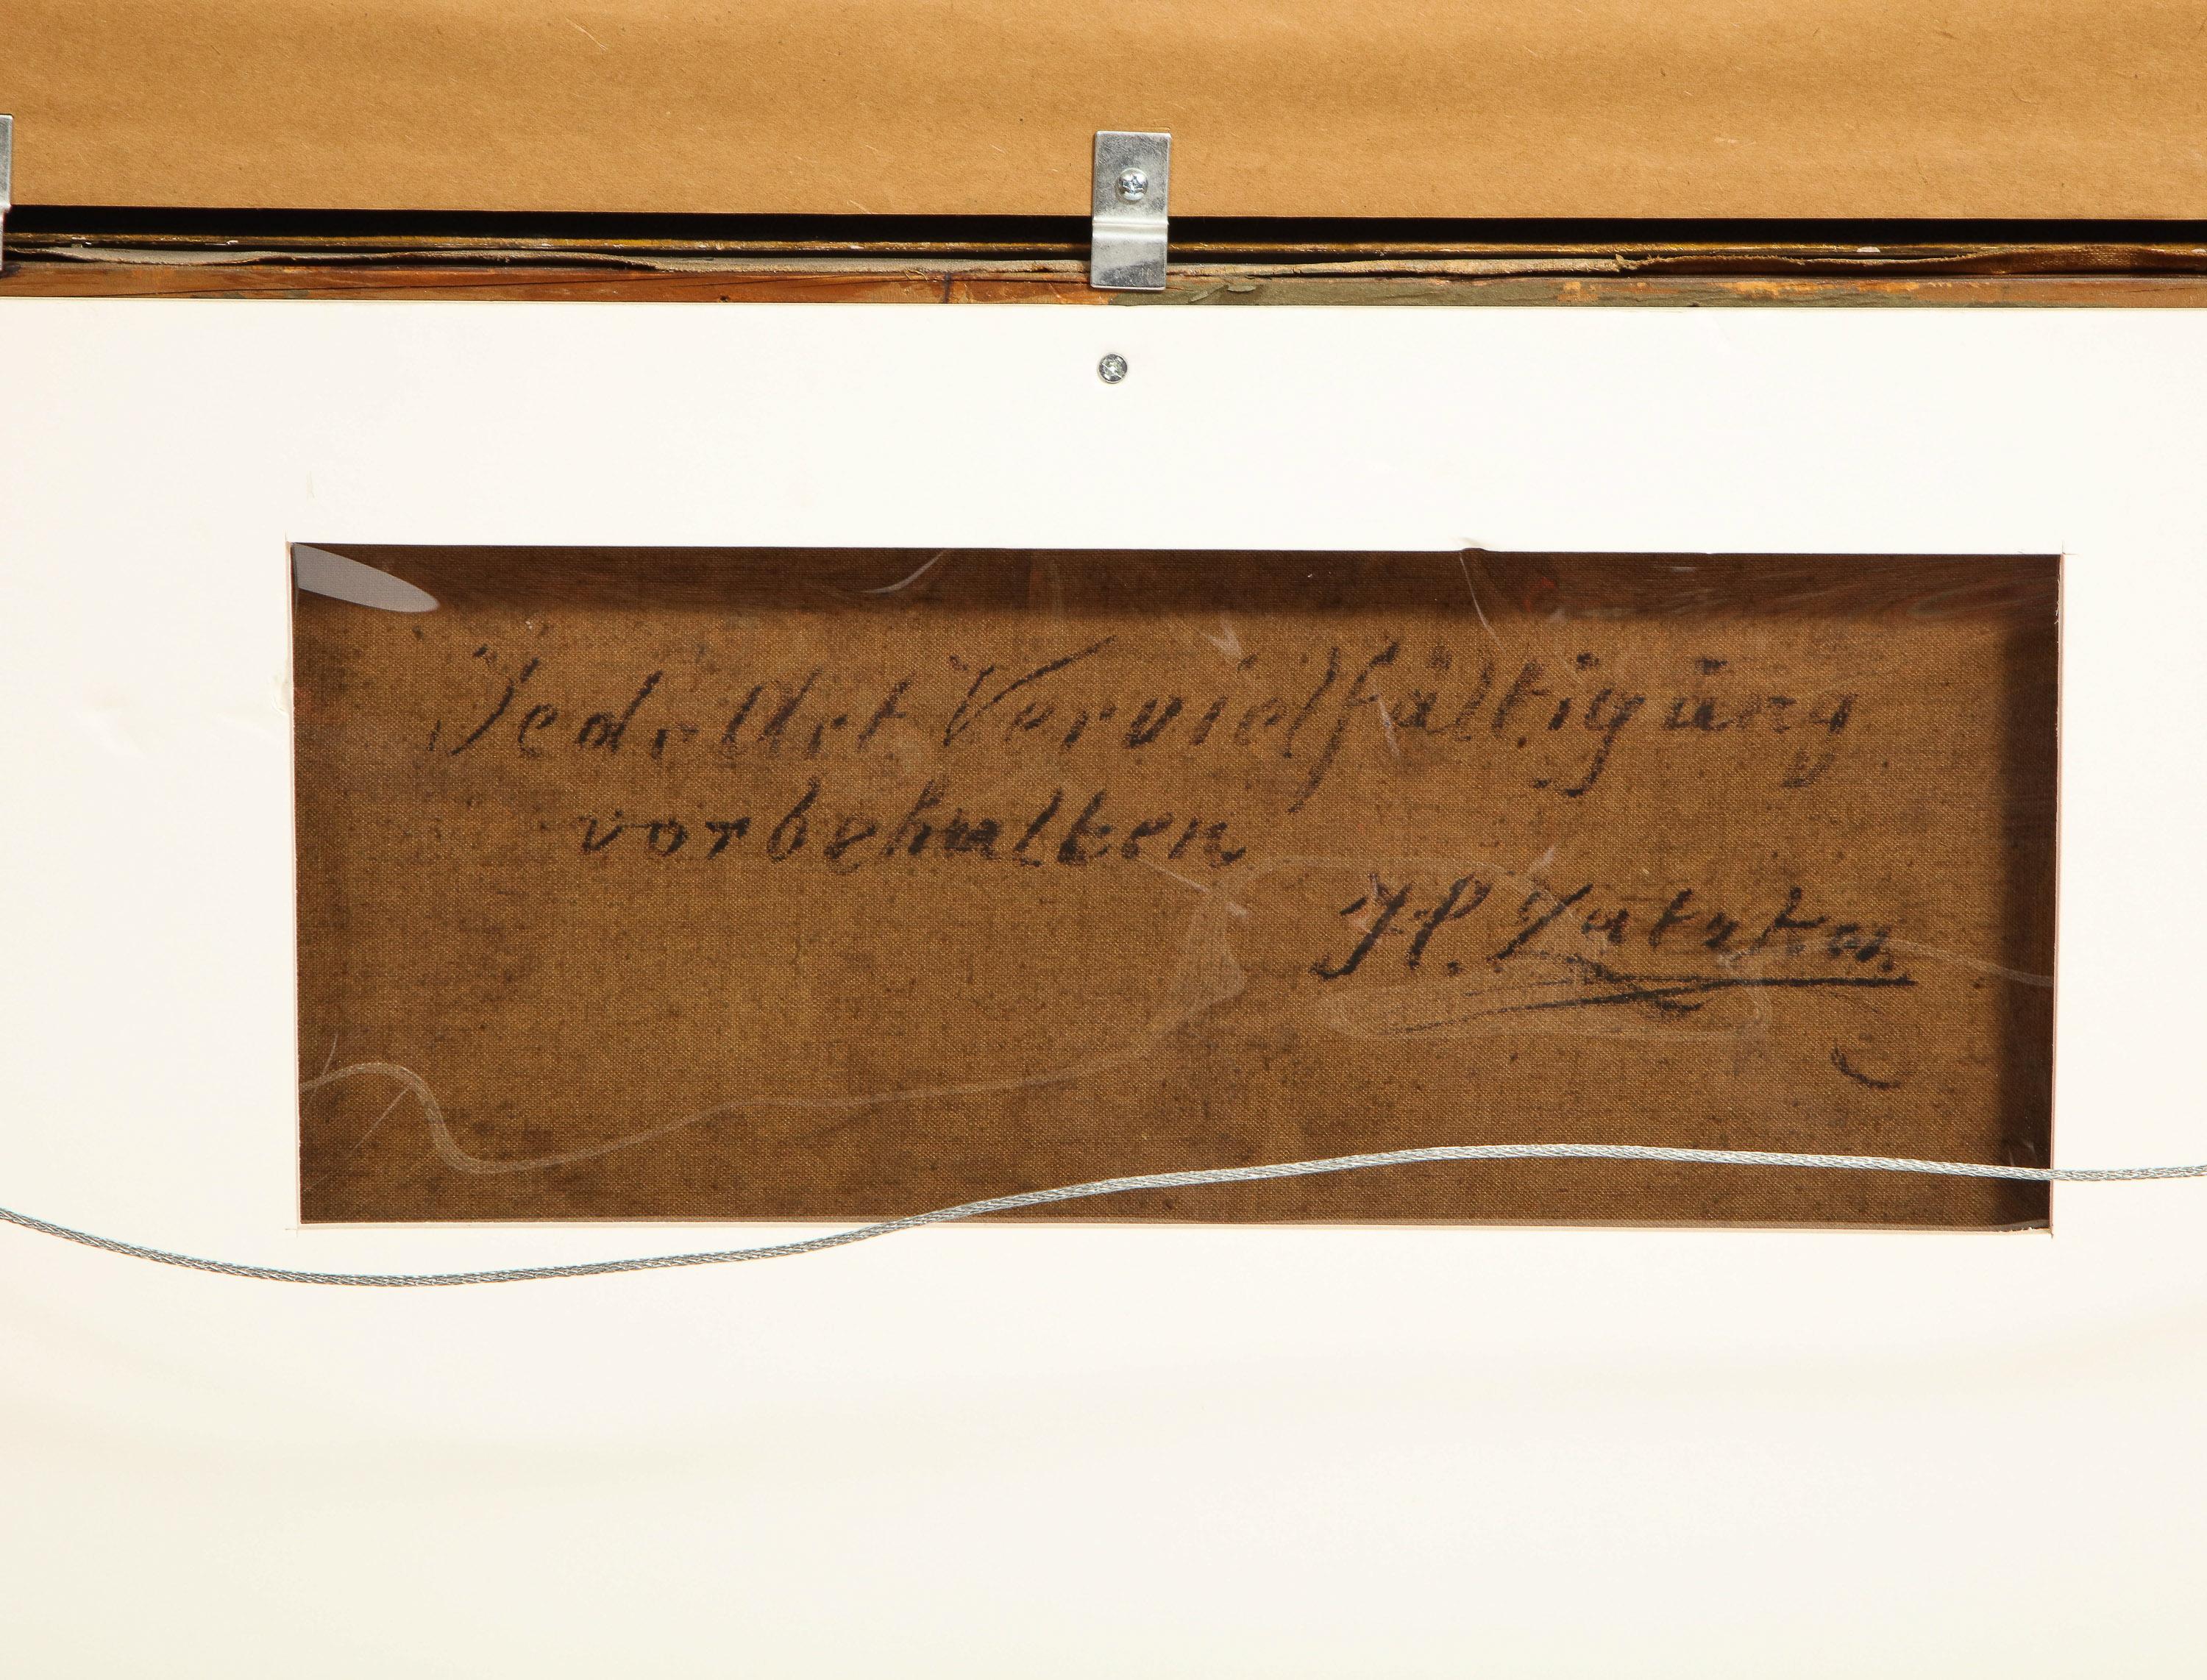 Jede Art Vervielfältigung
vorbehalten
H. Zatzka